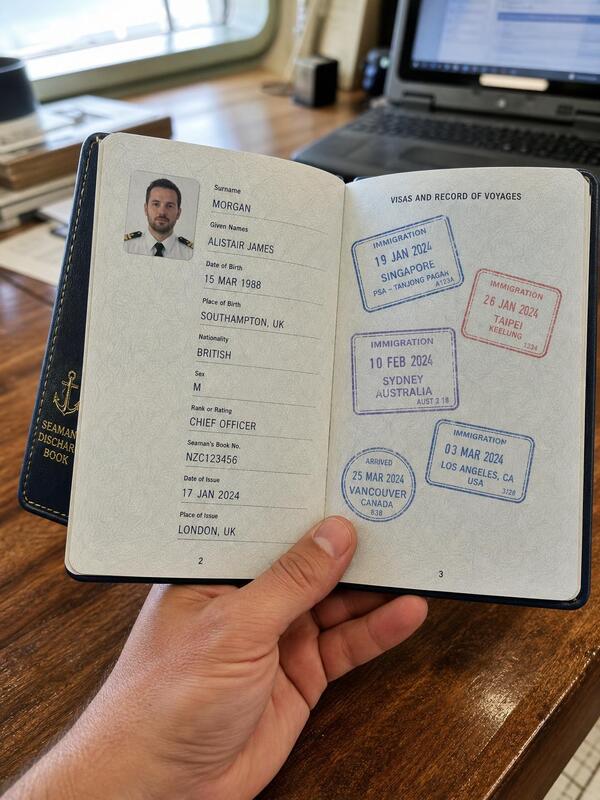 SEAMAN
DISCHAR
BOOK
Surname
MORGAN
Given Names
ALISTAIR JAMES
Date of Birth
15 MAR 1988
Place of Birth
SOUTHAMPTON, UK
Nationality
BRITISH
Sex
M
Rank or Rating
CHIEF OFFICER
Seaman's Book No.
NZC123456
Date of Issue
17 JAN 2024
Place of Issue
LONDON, UK
2
VISAS AND RECORD OF VOYAGES
IMMIGRATION
19 JAN 2024
SINGAPORE
PSA - TANJONG PAGAR
A123A
IMMIGRATION
26 JAN 2024
TAIPEI
KEELUNG
1234
IMMIGRATION
10 FEB 2024
SYDNEY
AUSTRALIA
AUST 2 18
IMMIGRATION
03 MAR 2024
LOS ANGELES, CA
USA
3128
ARRIVED
25 MAR 2024
VANCOUVER
CANADA
838
3